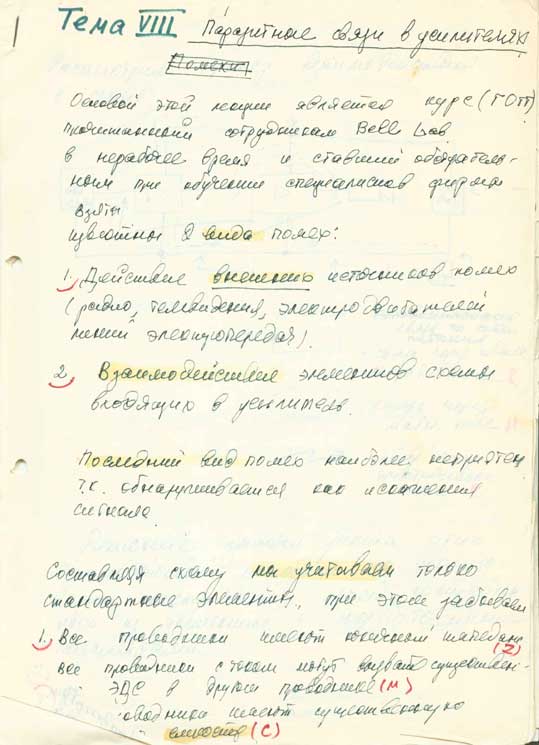 Тема VIII Паразитные связи в усилителях
Помехи
Основой этой лекции является курс (ГОТТ)
прочитанный сотрудникам Bell Lab
в нерабочее время и ставший обязатель-
ным при обучении специалистов фирмы
взяты
известны 2 вида помех:
1. Действие внешних источников помех
(радио, телевидения, электродвигателей
линий электропередач).
2 Взаимодействия элементов схемы
входящих в усилитель.
Последний вид помех наиболее неприятен
т.к. обнаруживается как искажения
сигнала.
Составляя схему мы учитываем только
стандартные элементы, при этом забываем
1. Все проводники имеют конечный импеданс
(Z)
все проводники с током могут вызвать существен-
ЭДС в другом проводнике (М)
оводники имеют существенную
емкость (С)